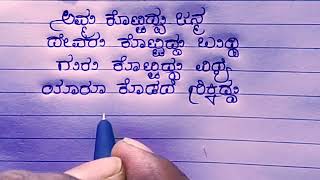 ಅಮ್ಮ ಕೊಟ್ಟಿದ್ದು ಜನ್ಮ
ದೇವರು ಕೊಟ್ಟಿದ್ದು ಬುದ್ಧಿ
ಗುರು ಕೊಟ್ಟಿದ್ದು ವಿದ್ಯೆ
ಯಾರೂ ಕೊಡದೆ ಸಿಕ್ಕಿದ್ದು